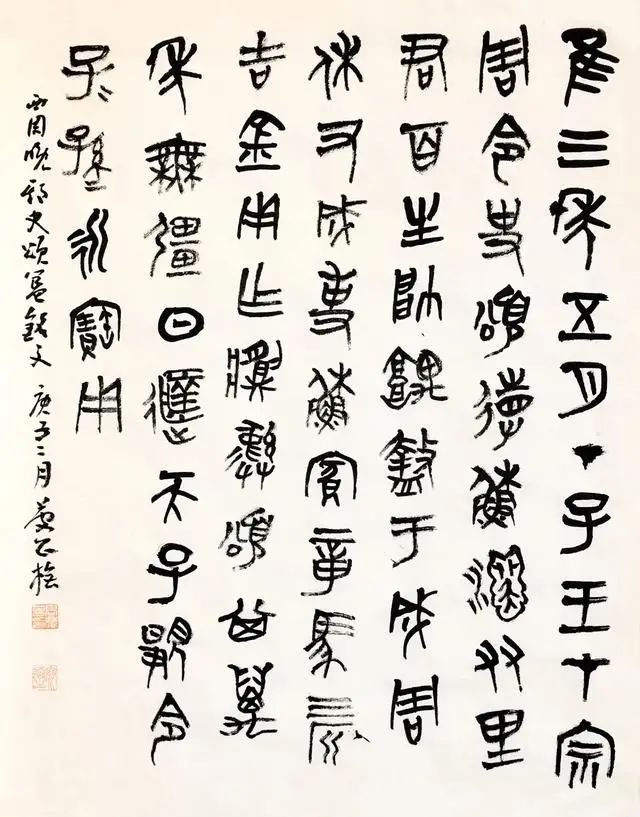 隹三年五月丁子王才宗
周令史頌省穌友里
君百生帥盩于成周
休又成事穌賓章馬四匹
吉金用乍彝頌其萬
年無疆日天子顯令
子=孫=永寶用
西周晚期史頌簋銘文 庚子二月